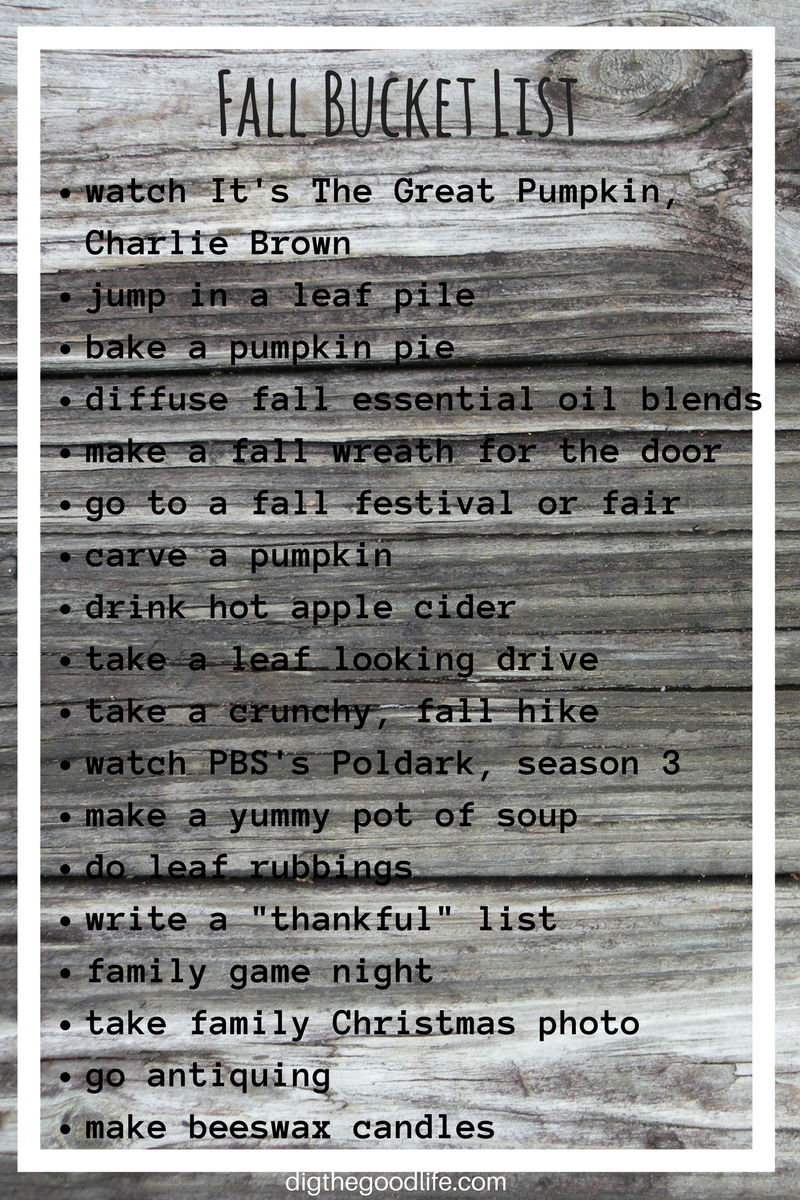 Fall Bucket List
• watch It's The Great Pumpkin,
Charlie Brown
• jump in a leaf pile
• bake a pumpkin pie
• diffuse fall essential oil blends
• make a fall wreath for the door
• go to a fall festival or fair
• carve a pumpkin
• drink hot apple cider
• take a leaf looking drive
• take a crunchy, fall hike
• watch PBS's Poldark, season 3
• make a yummy pot of soup
• do leaf rubbings
• write a "thankful" list
• family game night
• take family Christmas photo
• go antiquing
• make beeswax candles
digthegoodlife.com